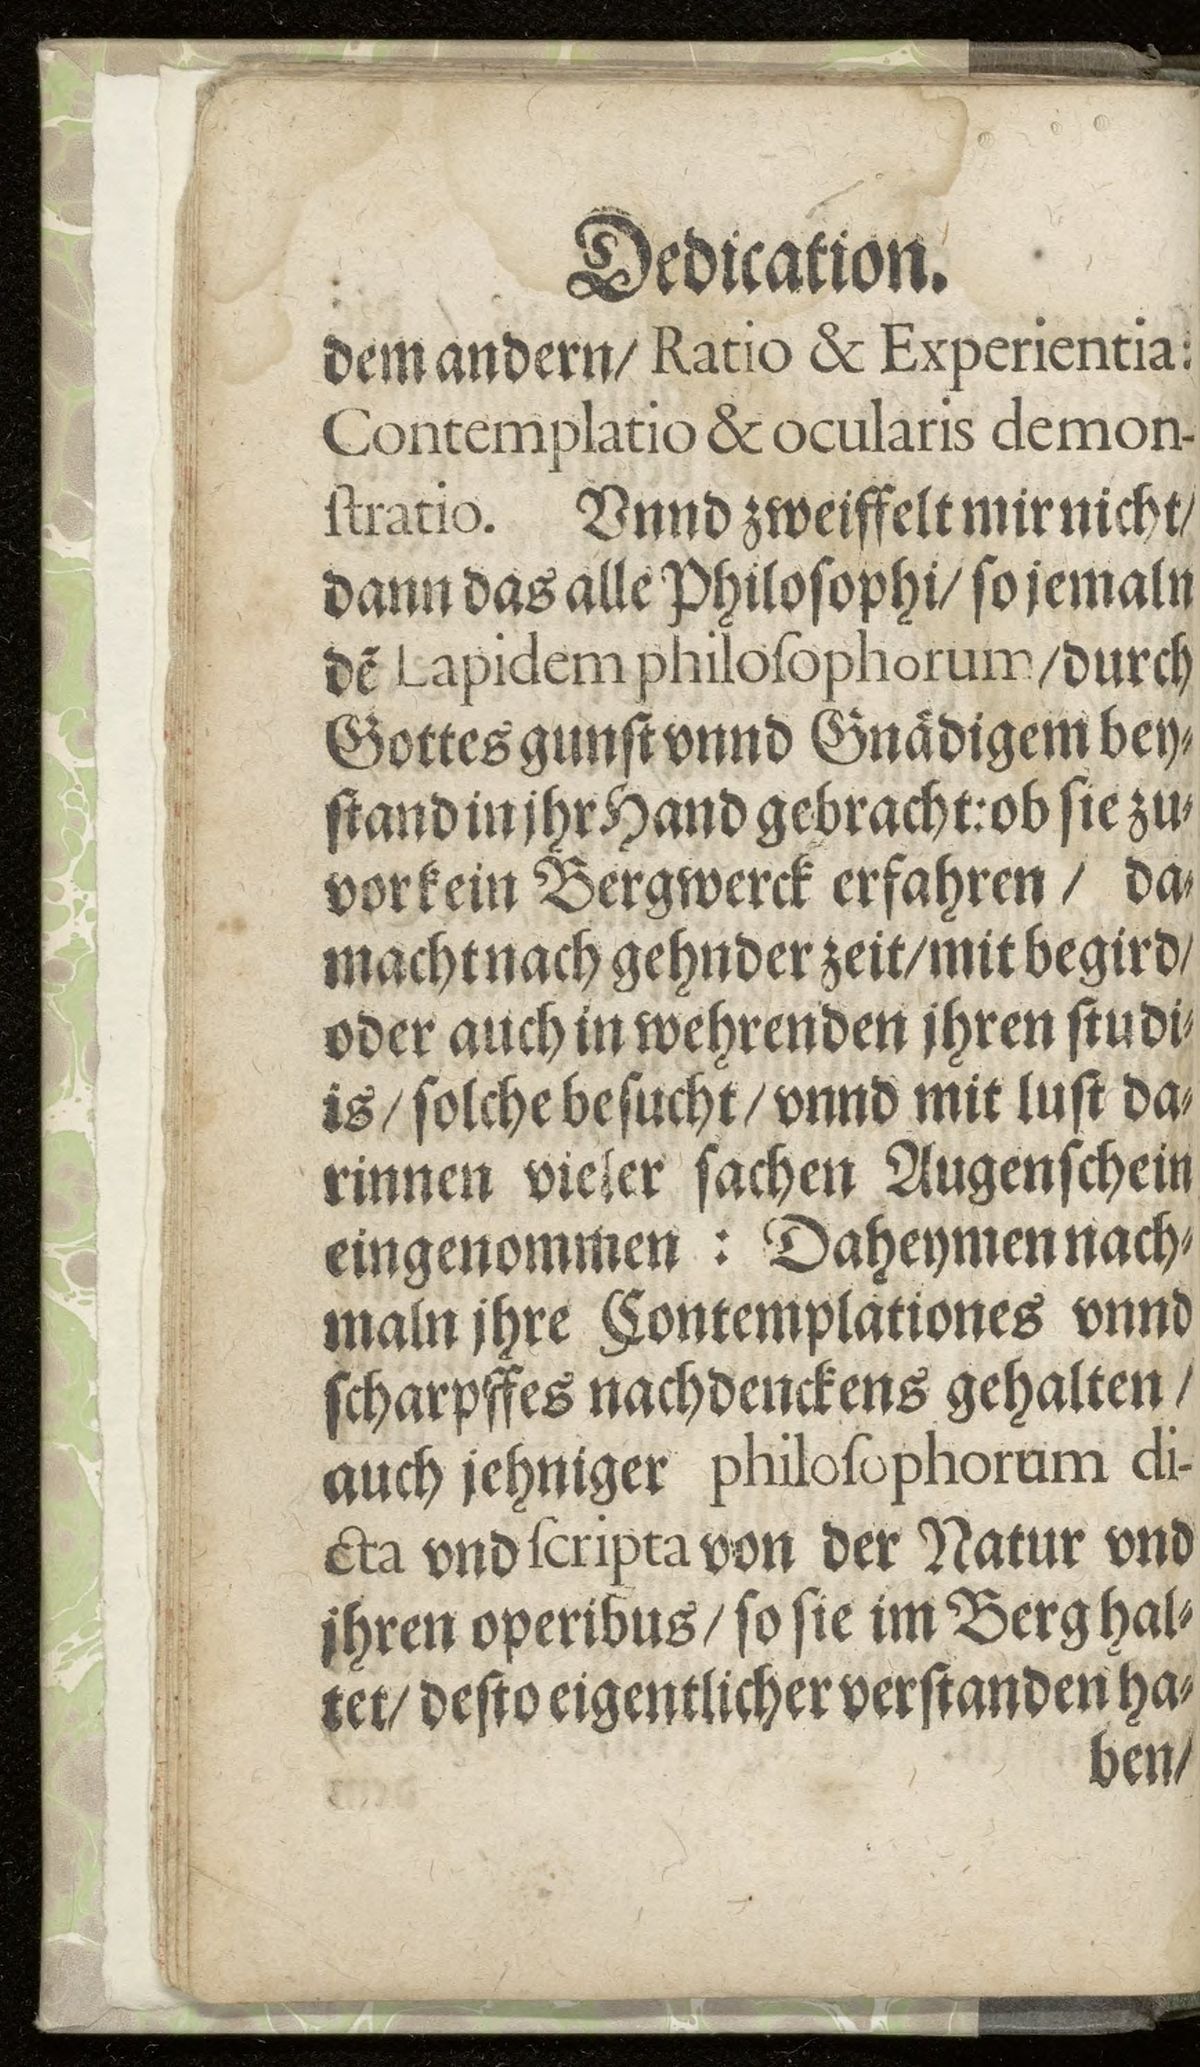 Dedication.
dem andern/ Ratio & Experientia:
Contemplatio & ocularis demon-
ſtratio. Vnnd zweiffelt mir nicht/
dann das alle Philoſophi/ ſo jemaln
dẽ Lapidem philoſophorum/durch
Gottes gunſt vnnd Gnaͤdigem bey⸗
ſtand in jhr Hand gebracht: ob ſie zu⸗
vor kein Bergwerck erfahren / da⸗
macht nach gehnder zeit/mit begird/
oder auch in wehrenden jhren ſtudi⸗
is/ ſolche beſucht/ vnnd mit luſt da⸗
rinnen vieler ſachen Augenſchein
eingenommen : Daheymen nach⸗
maln jhre Contemplationes vnnd
ſcharpffes nachdenckens gehalten /
auch jehniger philoſophorum di-
cta vnd ſcripta von der Natur vnd
jhren operibus/ ſo ſie im Berg hal⸗
tet/ deſto eigentlicher verſtanden ha⸗
ben/